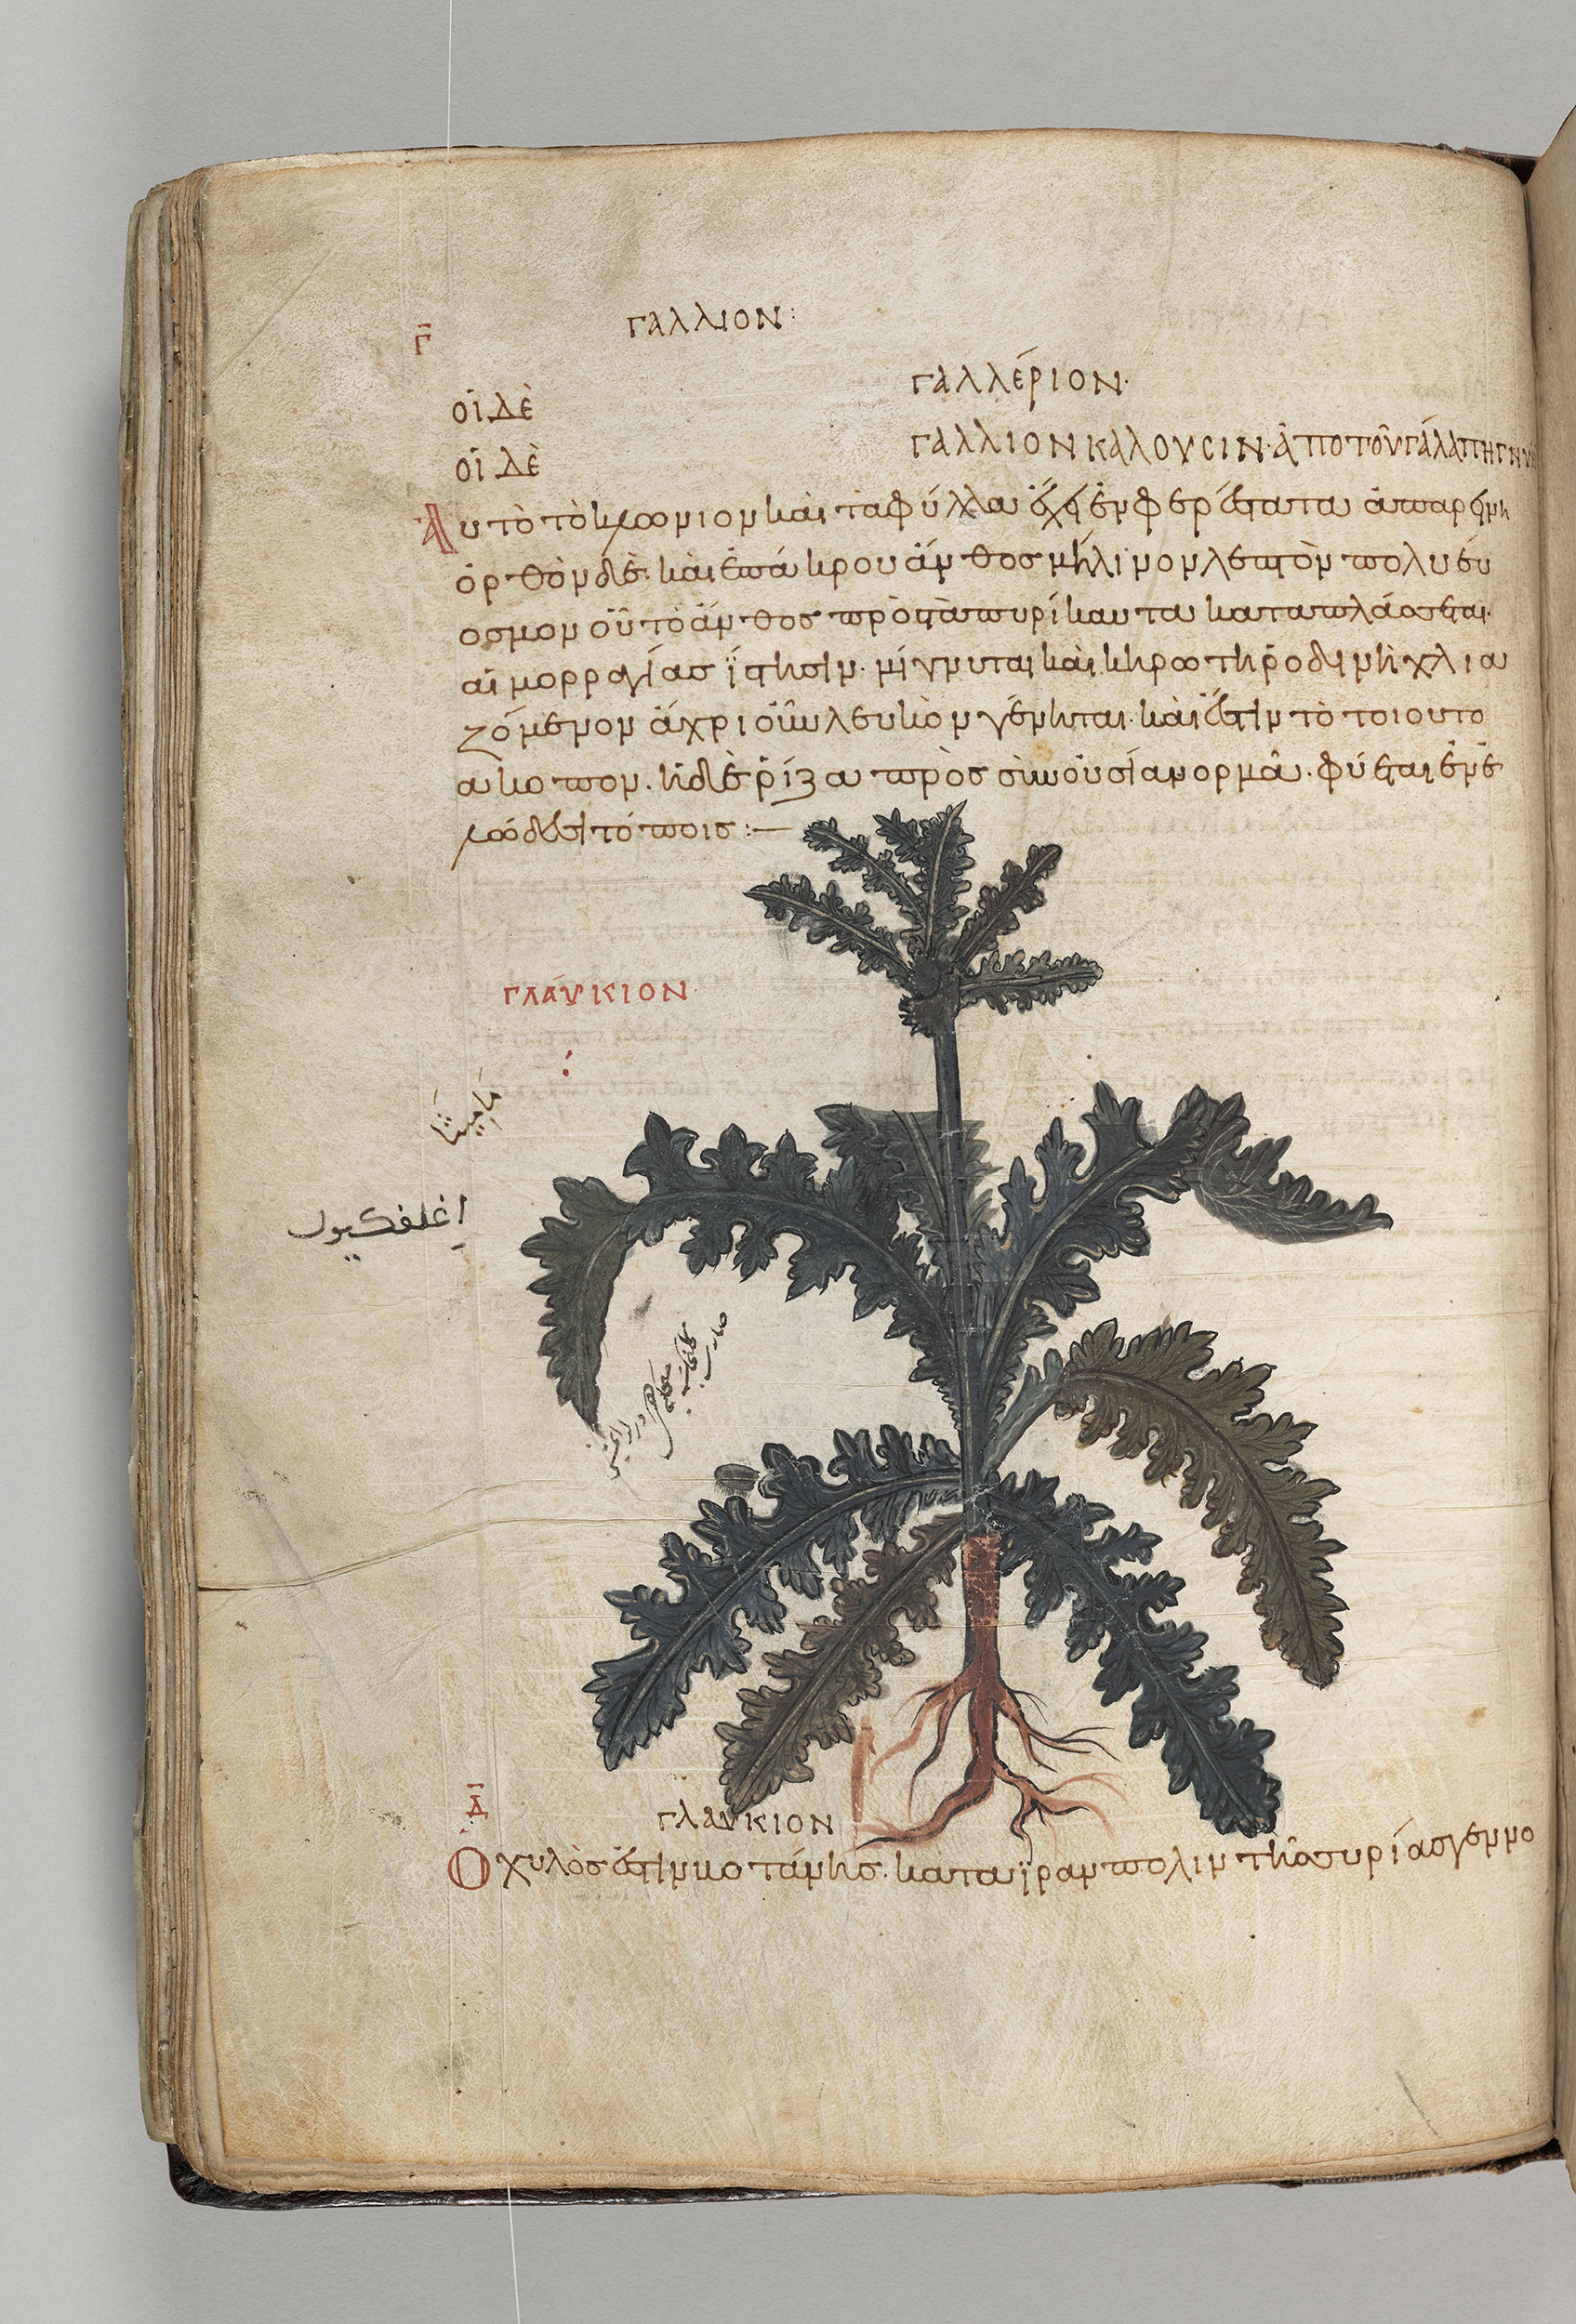 Γ̄
ΓΑΛΛΙΟΝ:
ΓΑΛΛΈΡΙΟΝ·
ΟἹ ΔῈ
ΓΑΛΛΙΟΝ ΚΑΛΟΥCΙΝ· ἈΠΟ ΤΟΥ͂ ΓΆΛΑ ΠΗΓΝΥ
ΟἹ ΔῈ
Αυτὸ τὸ κλωνίον καὶ τὰ φύλλα ἔχει ἐμφερέστατα ἀπαρίνη
ὀρθὸν δέ. καὶ ἐπάκρου ἄνθος μήλινον λεπτὸν πολυ εὐ
οσμον οὗ τὸ ἄνθος πρὸς τὰ πυρίκαυτα καταπλάσσεται·
αἱμορραγίας ἵστησιν· μίγνυται καὶ κηρωτῆ ῥοδίνη ἡλια
ζόμενον ἄχρι οὗ λευκὸν γένηται· καὶ ἔστιν τὸ τοιουτο
ακοπον. ἡ δὲ ῥίζα πρὸς συνουσίαν ορμᾶ· φύεται ἐν ἑ
λώδεσι τόποις:—
ΓΛΆΥΚΙΟΝ
:
مَامِيثَا
اغلفكيون
Δ̄
ΓΛΑΥΚΙΟΝ
Ο χυλὸς ἐστὶν βοτάνης. κατα ϊραν πολιν τῆς συρίας γεννο